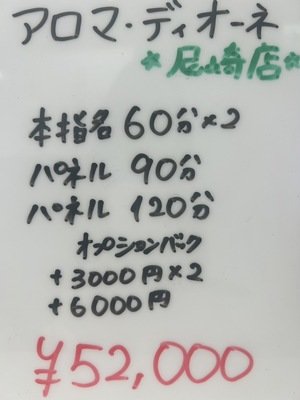 アロマ・ディオーネ
*尼崎店*
本指名 60分×2
パネル 90分
パネル 120分
オプションバック
+3000円×2
+6000円
¥52,000